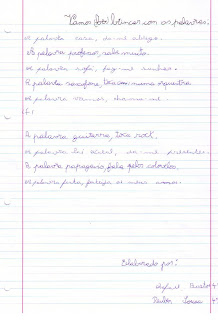 Vamos brincar com as palavras
A palavra casa, dá-me abrigo.
A palavra professor, sabe muito.
A palavra sofá, faz-me sonhar.
A palavra saxofone, toca numa orquestra.
A palavra vamos, chama-me.
A palavra guitarra, toca rock.
A palavra Pai Natal, dá-me presentes.
A palavra papagaio, fala pelos cotovelos.
A palavra festa, festeja os meus anos.
Elaborado por:
Rafael